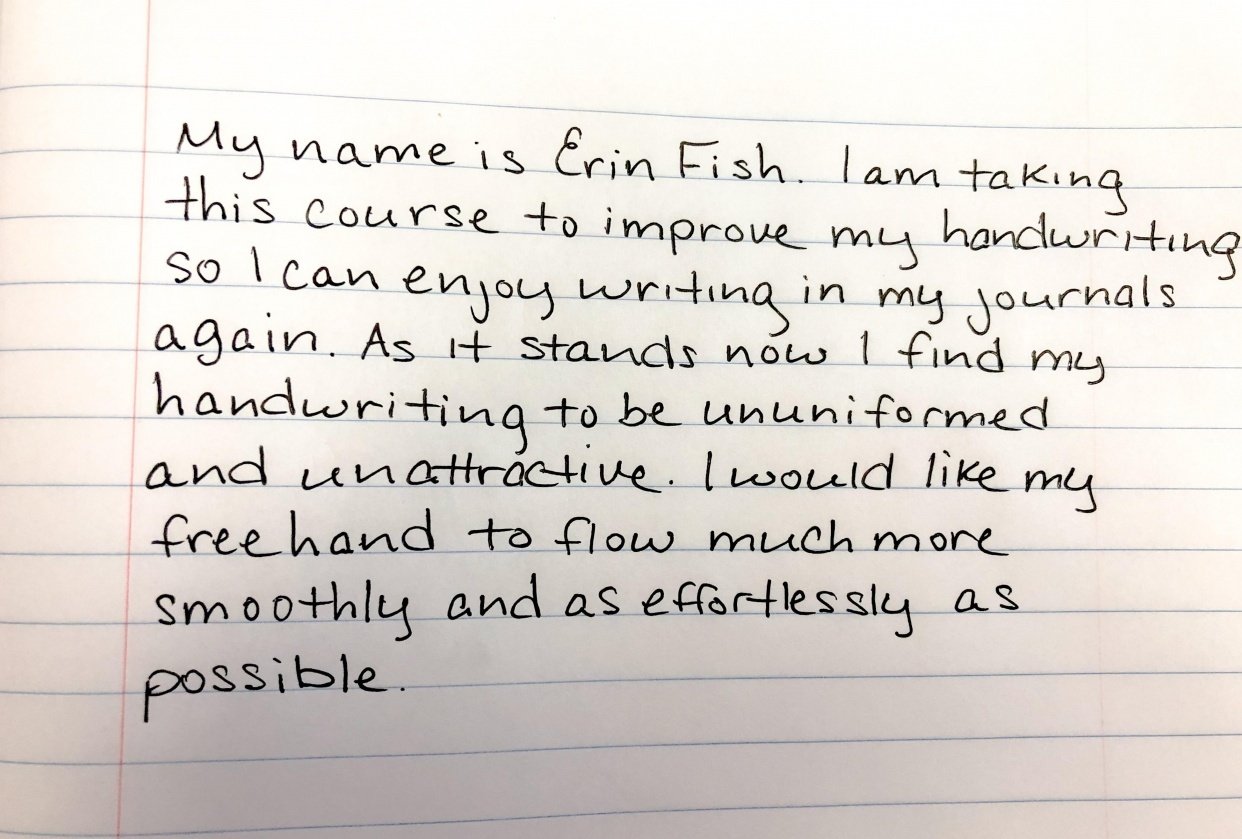 My name is Erin Fish. I am taking
this course to improve my handwriting
so I can enjoy writing in my journals
again. As it stands now I find my
handwriting to be ununiformed
and unattractive. I would like my
freehand to flow much more
smoothly and as effortlessly as
possible.